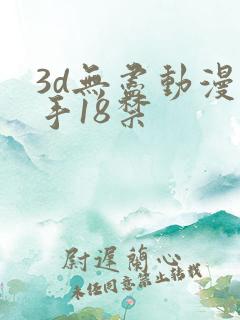 3d無盡動漫
手18禁
尉遲蘭心
未经同意禁止转载